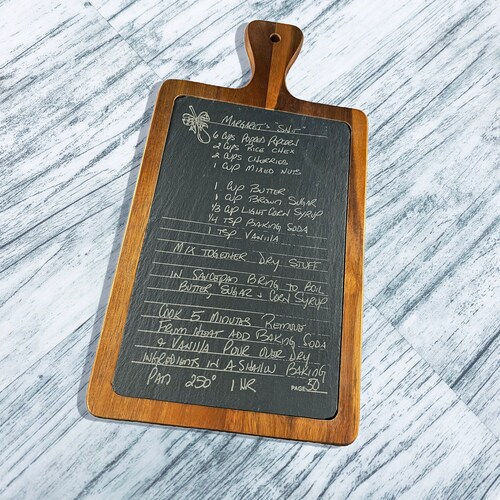 MARGARET'S "SHIT"
6 CUPS POPPED POPCORN
2 CUPS RICE CHEX
2 CUPS CHEERIOS
1 CUP MIXED NUTS
1 CUP BUTTER
1 CUP BROWN SUGAR
1/3 CUP LIGHT CORN SYRUP
1/4 TSP BAKING SODA
1 TSP VANILLA
MIX TOGETHER DRY STUFF
IN SAUCEPAN BRING TO BOIL
BUTTER, SUGAR + CORN SYRUP
COOK 5 MINUTES REMOVE
FROM HEAT ADD BAKING SODA
& VANILLA POUR OVER DRY
INGREDIENTS IN A SHALLW BAKING
PAN 250° 1 HR
PAGE 50